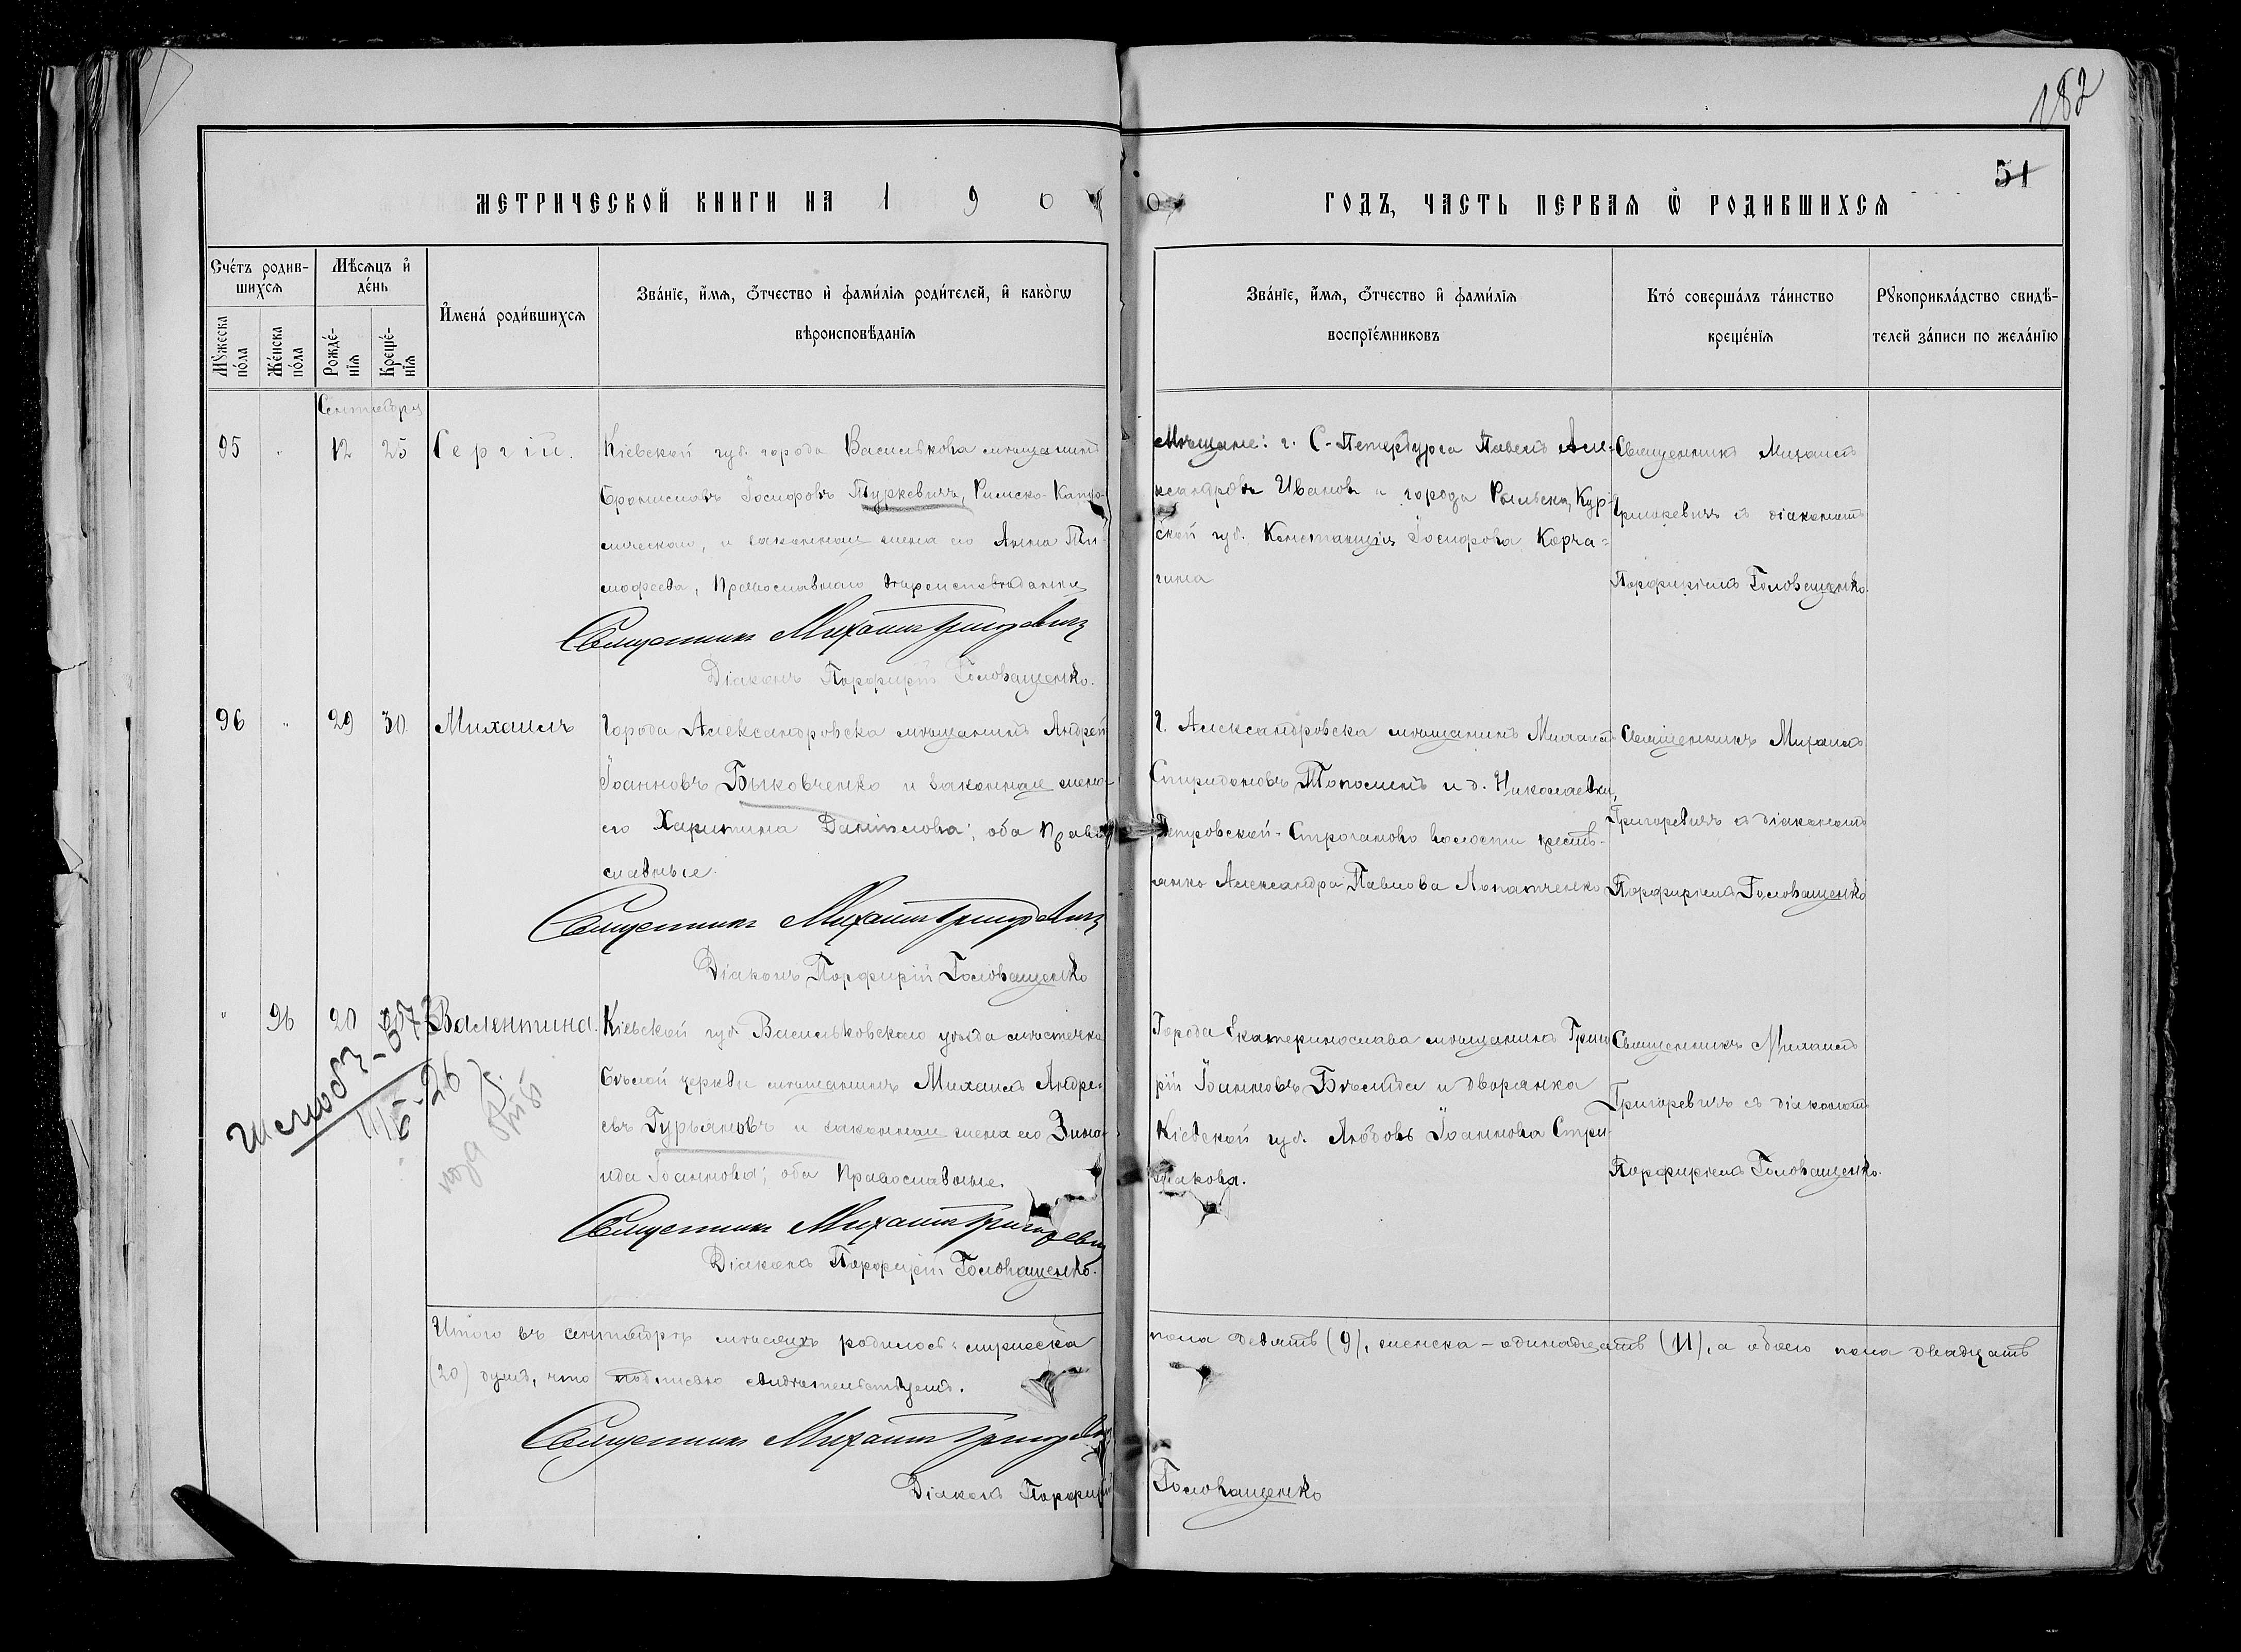 182
51
МЕТРИЧЕСКОЙ КНИГИ НА 1900 ГОДЪ, ЧАСТЬ ПЕРВАЯ Ѽ РОДИВШИХСЯ
Счетъ родив-
шихся
Мужеска
пола
Женска
пола
Мѣсяцъ и
день
Рожде-
нія
Креще-
нія
Имена родившихся
Званіе, имя, отчество и фамилія родителей, и какогѡ
вѣроисповѣданія
Званіе, имя, отчество и фамилія
воспріемниковъ
Кто совершалъ таинство
крещенія
Рукоприкладство свидѣ-
телей записи по желанію
Сентябрь
95 " 12 25 Сергій.
Кіевской губ. города Василькова мѣщанинъ
Брониславъ Іосифовъ Туркевичъ, Римско-Като-
лическаго, и законная жена его Анна Ти-
мофеева, Православнаго вѣроисповѣданія
Священникъ Михаилъ Григоревичъ
Діаконъ Порфирій Головащенко.
Мѣщане: г. С-Петербурга Павелъ Але-
ксандровъ Ивановъ и города Рыльска, Кур-
ской губ. Констанція Іосифова Корча-
гина
Священникъ Михаилъ
Григоревичъ съ діакономъ
Порфиріемъ Головащенко.
96 " 29 30. Михаилъ
Города Александровска мѣщанинъ Андрей
Іоанновъ Быковченко и законная жена
его Харитина Даніилова; оба Право-
славные.
Священникъ Михаилъ Григоревичъ
Діаконъ Порфирій Головащенко
Г. Александровска мѣщанинъ Михаилъ
Спиридоновъ Тополинъ и д. Николаевки,
Петровской-Строганово волости кресть-
янка Александра Павлова Лопатченко
Священникъ Михаилъ
Григоревичъ съ діакономъ
Порфиріемъ Головащенко
" 96 20 Валентина.
Кіевской губ. Васильковскаго уѣзда мѣстечка
Бѣлой церкви мѣщанинъ Михаилъ Андре-
евъ Гурьяновъ и законная жена его Зина-
ида Іоаннова; оба Православные.
Священникъ Михаилъ Григоревичъ
Діаконъ Порфирій Головащенко.
Города Екатеринослава мѣщанинъ Григо
рій Іоанновъ и дворянка
Кіевской губ. Любовь Іоаннова
Священникъ Михаилъ
Григоревичъ съ діакономъ
Порфиріемъ Головащенко.
Итого въ сентябрѣ мѣсяцѣ родилось: мужеска пола девять (9), женска – одинадцать (11), а обоего пола двадцать
(20) душъ, что подписью свидѣтельствуемъ.
Священникъ Михаилъ Григоревичъ
Діаконъ Порфирій Головащенко